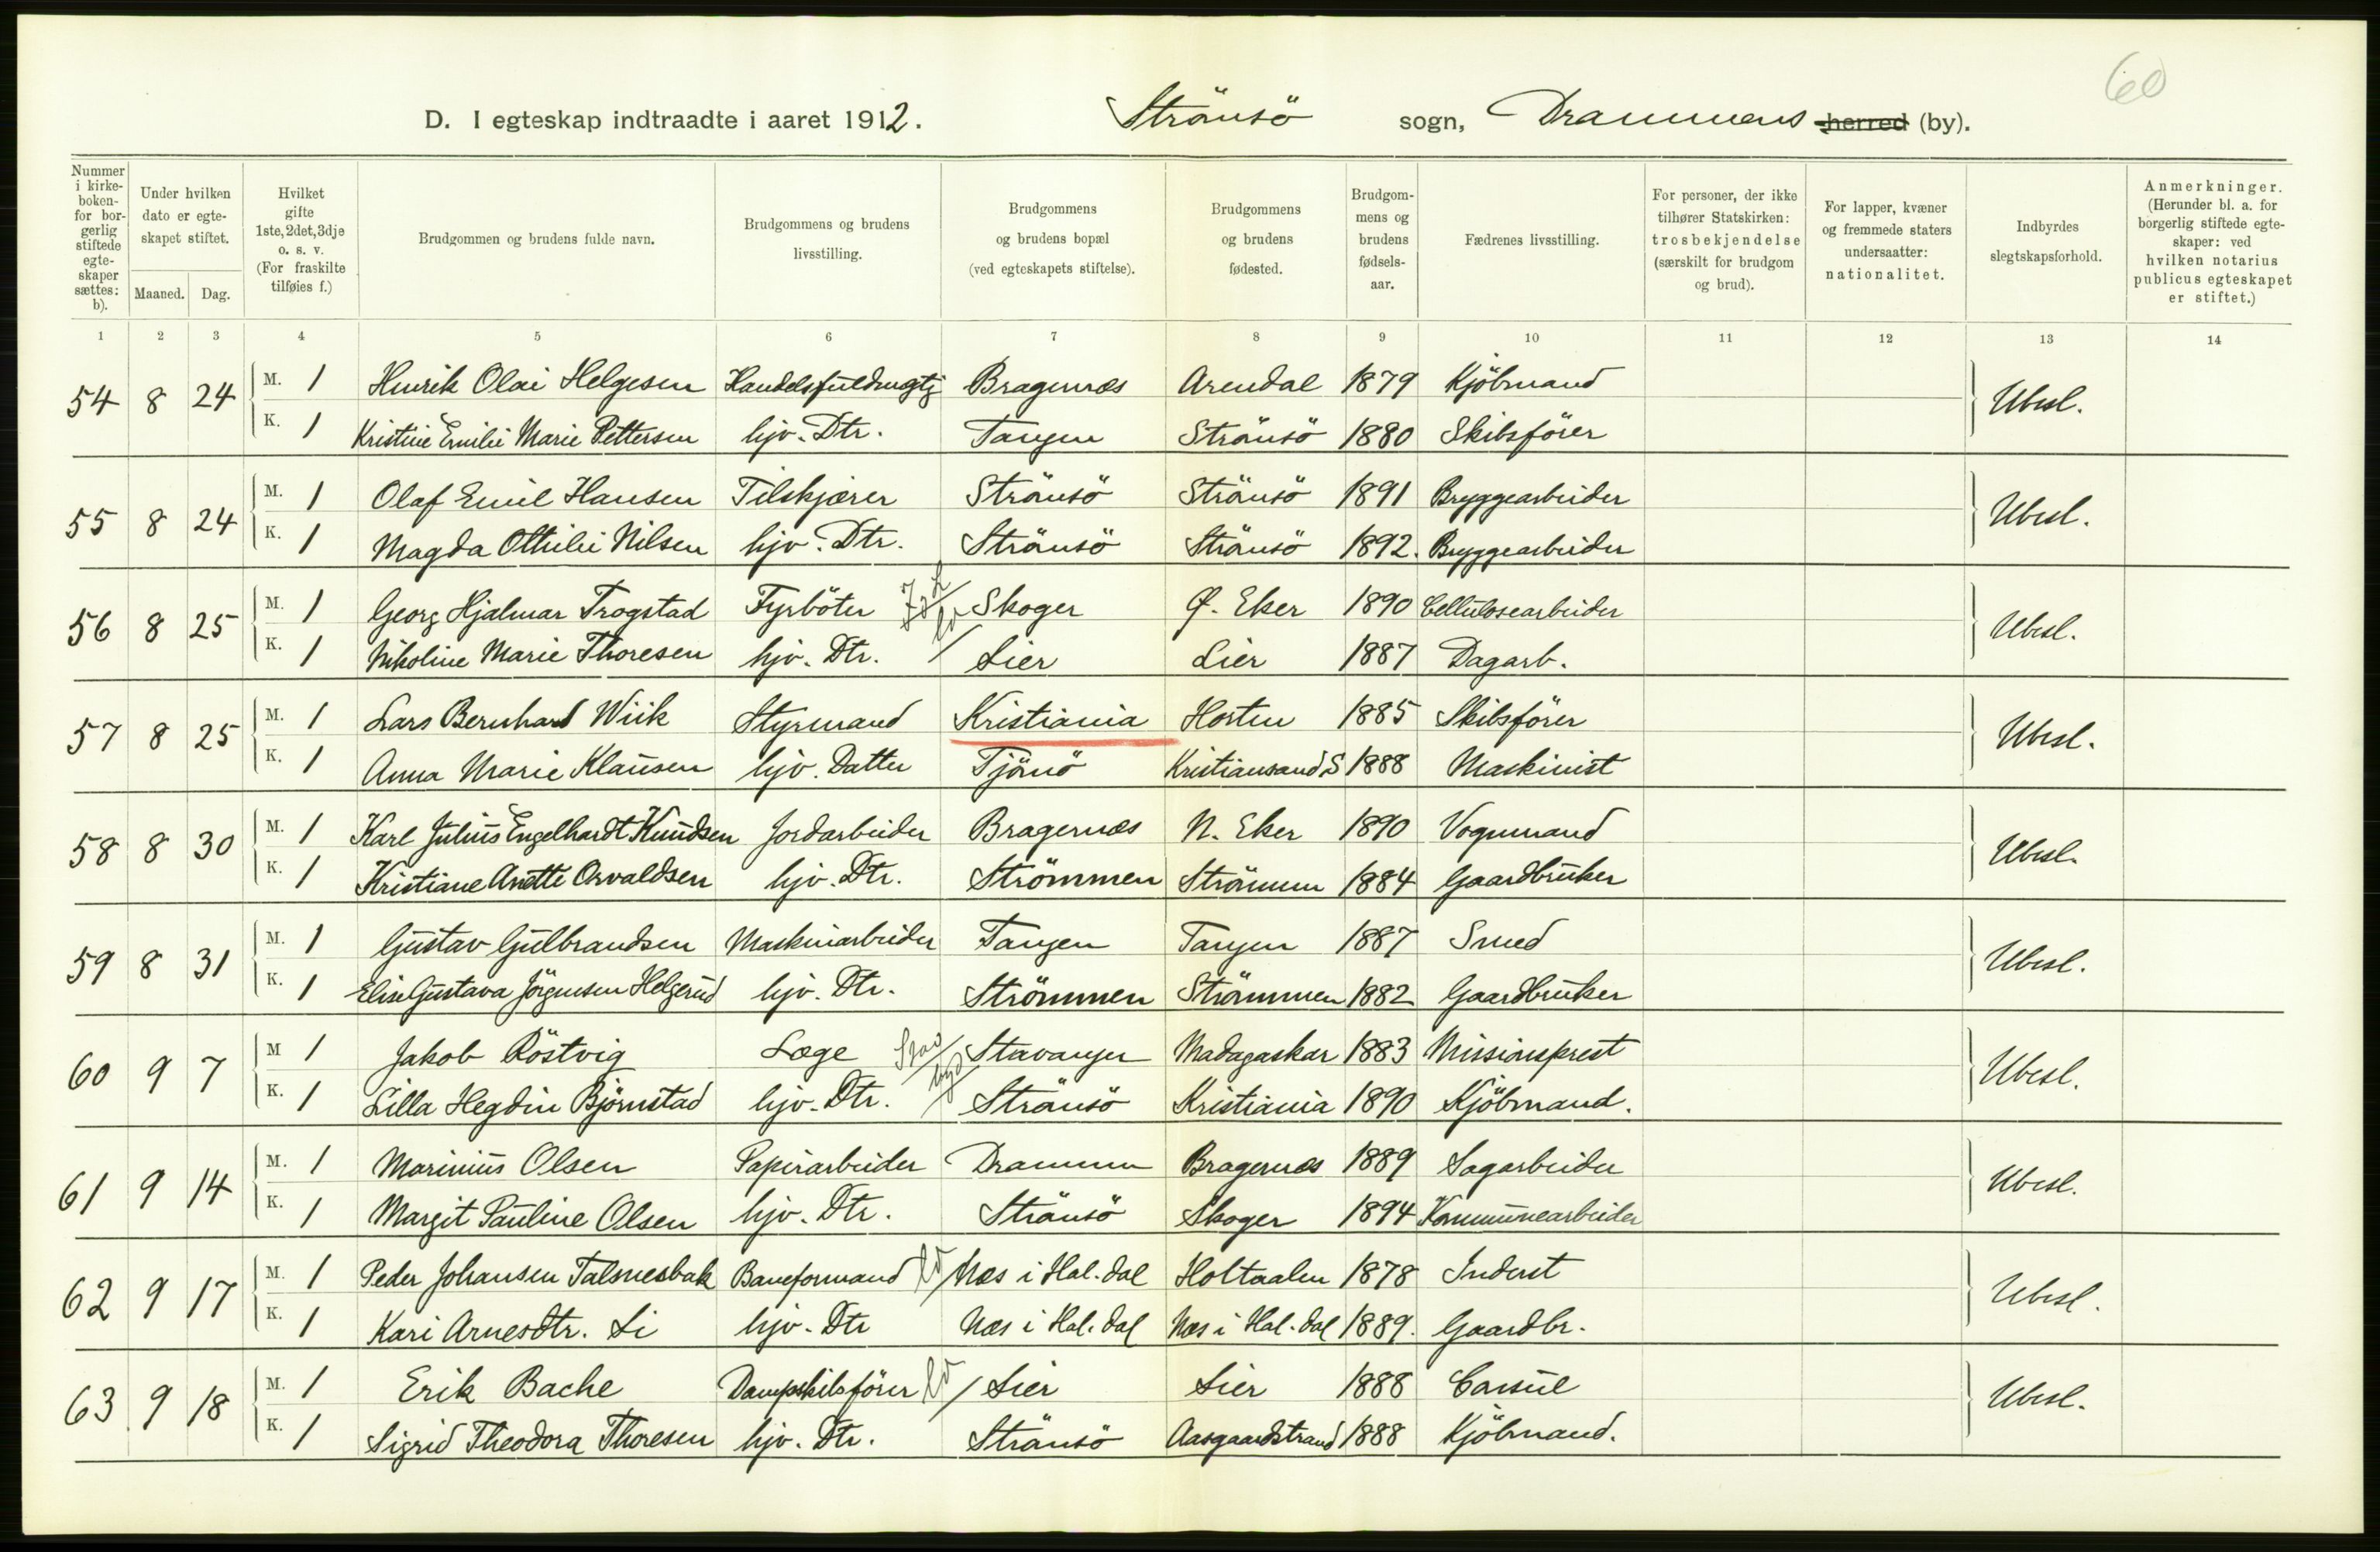 60
D. I egteskap indtraadte i aaret 1912. Strömsö sogn, Drammens herred (by).
Nummer i kirkeboken- for borgerlig stiftede egteskaper sættes: b). | Under hvilken dato er egteskapet stiftet. Maaned. Dag. | Hvilket gifte 1ste, 2det, 3dje o. s. v. (For fraskilte tilføies f.) | Brudgommen og brudens fulde navn. | Brudgommens og brudens livsstilling. | Brudgommens og brudens bopæl (ved egteskapets stiftelse). | Brudgommens og brudens fødested. | Brudgommens og brudens fødselsaar. | Fædrenes livsstilling. | For personer, der ikke tilhører Statskirken: trosbekjendelse (særskilt for brudgom og brud). | For lapper, kvæner og fremmede staters undersaatter: nationalitet. | Indbyrdes slegtskapsforhold. | Anmerkninger. (Herunder bl. a. for borgerlig stiftede egteskaper: ved hvilken notarius publicus egteskapet er stiftet.)
1 2 3 4 5 6 7 8 9 10 11 12 13 14
54 8 24 M. 1 Henrik Olai Helgesen Handelsfuldmegtig Bragernæs Arendal 1879 Kjöbmand Ubesl.
K. 1 Kristine Emilie Marie Pettersen hjv. Dtr. Tangen Strömsö 1880 Skibsförer
55 8 24 M. 1 Olaf Emil Hansen Tilskjærer Strömsö Strömsö 1891 Bryggearbeider Ubesl.
K. 1 Magda Ottilie Nilsen hjv. Dtr. Strömsö Strömsö 1892. Bryggearbeider
56 8 25 M. 1 Georg Hjalmar Trogstad Fyrböter Skoger Ø. Eker 1890 Cellulosearbeider Ubesl.
K. 1 Nikoline Marie Thoresen hjv. Dtr. Lier Lier 1887 Dagarb.
57 8 25 M. 1 Lars Bernhard Wiik Styrmand Kristiania Horten 1885 Skibsförer Ubesl.
K. 1 Anna Marie Klausen hjv. Datter Tjömö Kristiansand S 1888 Maskinist
58 8 30 M. 1 Karl Julius Engelhardt Knudsen Jordarbeider Bragernæs N. Eker 1890 Vognmand Ubesl.
K. 1 Kristiane Anette Osvaldsen hjv. Dtr. Strömmen Strömmen 1884 Gaardbruker
59 8 31 M. 1 Gustav Gulbrandsen Maskinarbeider Tangen Tangen 1887 Smed Ubesl.
K. 1 Elise Gustava Jörgensen Helgerud hjv. Dtr. Strömmen Strömmen 1882 Gaardbruker
60 9 7 M 1 Jakob Röstvig Læge Stavanger Madagaskar 1883 Missionsprest Ubesl.
K. 1 Lilla Hegdin Björnstad hjv. Dtr. Strömsö Kristiania 1890 Kjöbmand.
61 9 14 M. 1 Marinius Olsen Papirarbeider Drammen Bragernæs 1889 Sagarbeider Ubesl.
K. 1 Margit Pauline Olsen hjv. Dtr. Strömsö Skoger 1894 Kommunearbeider
62 9 17 M. 1 Peder Johansen Talsnesbak Baneformand Næs i Hal.dal Holtaalen 1878 Inderst Ubesl.
K. 1 Kari Arnesdtr. Li hjv. Dtr Næs i Hal.dal Næs i Hal.dal 1889. Gaardbr.
63 9 18 M. 1 Erik Bache Dampskibsförer Lier Lier 1888 Consul Ubesl.
K. 1 Sigrid Theodora Thoresen hjv. Dtr. Strömsö Aasgaardstrand 1888 Kjöbmand.